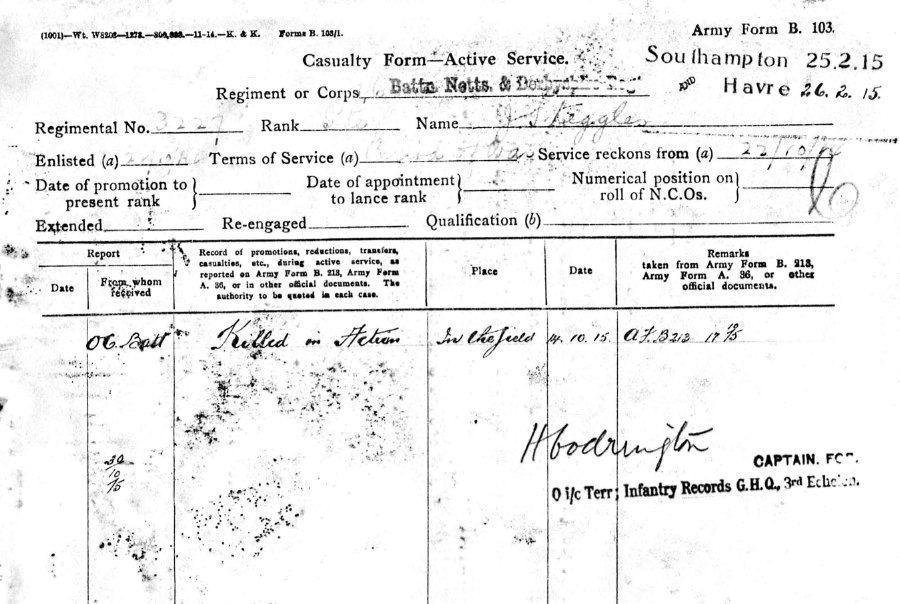 (1001)—Wt. W5203—1273.—800,000.—11-14.—K. & K. Forms B. 103/1.
Army Form B. 103.
Casualty Form—Active Service.
Southampton 25.2.15
AND Havre 26.2.15.
Regiment or Corps Battn Notts. & Derbyshire Reg
Regimental No. 3227 Rank Name J Skeggles
Enlisted (a) Terms of Service (a) Service reckons from (a) 22/10/14
Date of promotion to present rank
Date of appointment to lance rank
Numerical position on roll of N.C.Os.
Extended Re-engaged Qualification (b)
Report
Date
From whom received
Record of promotions, reductions, transfers,
casualties, etc., during active service, as
reported on Army Form B. 213, Army Form
A. 36, or in other official documents. The
authority to be quoted in each case.
Place
Date
Remarks
taken from Army Form B. 213,
Army Form A. 36, or other
official documents.
OC. Batt Killed in Action In the field 14.10.15 A.F.B213
30
10
15
CAPTAIN. FOR.
O i/c Terr; Infantry Records G.H.Q., 3rd Echelon.